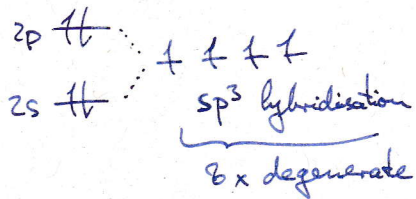 2p
2s
sp³ hybridisation
8 x degenerate